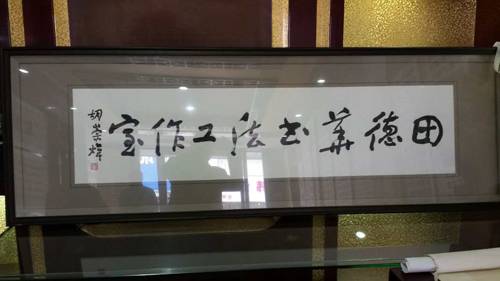 田德華书法工作室
胡荣烽